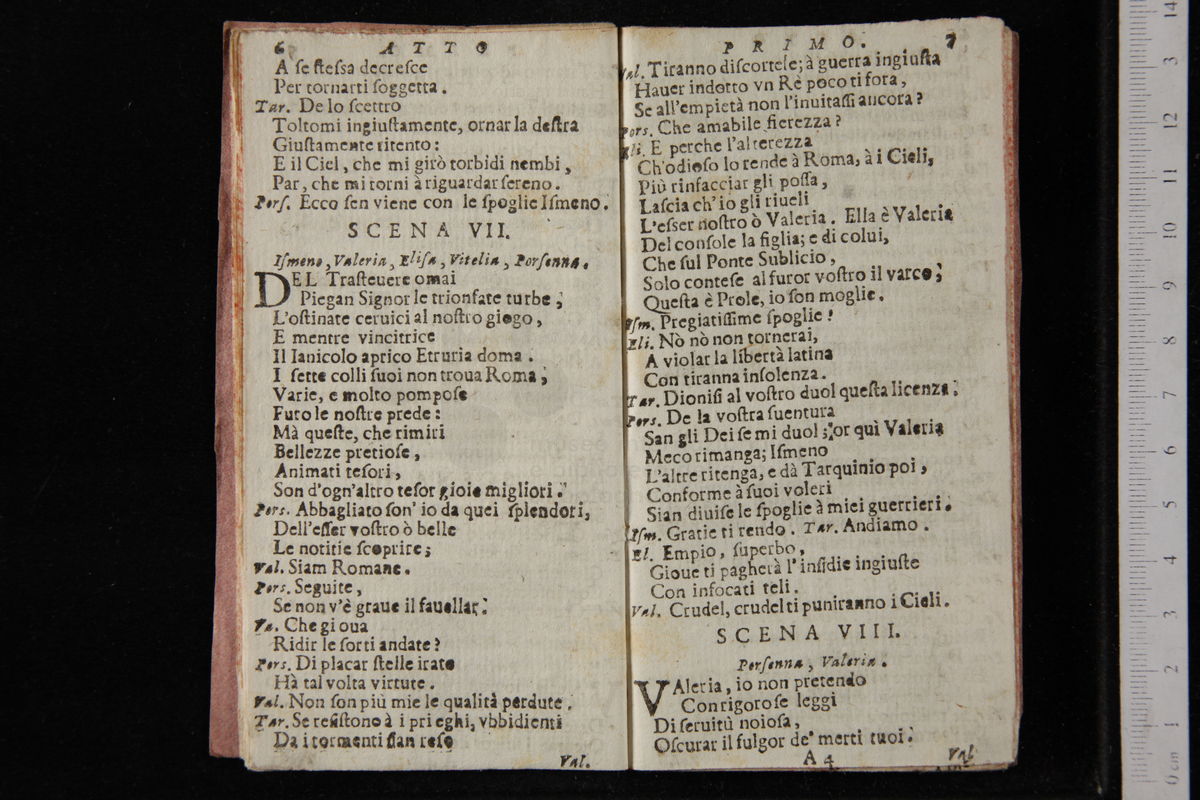 6 ATTO
A se stessa decresce
Per tornarti soggetta.
Tar. De lo scettro
Toltomi ingiustamente, ornar la destra
Giustamente ritento:
E il Ciel, che mi girò torbidi nembi,
Par, che mi torni à riguardar sereno.
Pors. Ecco sen viene con le spoglie Ismeno.
SCENA VII.
Ismeno, Valeria, Elisa, Vitelia, Porsenna.
DEL Trasteuere omai
Piegan Signor le trionfate turbe;
L'ostinate ceruici al nostro giogo,
E mentre vincitrice
Il Ianicolo aprico Etruria doma.
I sette colli suoi non troua Roma;
Varie, e molto pompose
Furo le nostre prede:
Mà queste, che rimiri
Bellezze pretiose,
Animati tesori,
Son d'ogn'altro tesor gioie migliori.
Pors. Abbagliato son' io da quei splendori,
Dell'esser vostro ò belle
Le notitie scoprire;
Val. Siam Romane.
Pors. Seguite,
Se non v'è graue il fauellar.
Va. Che gioua
Ridir le sorti andate?
Pors. Di placar stelle irate
Hà tal volta virtute.
Val. Non son più mie le qualità perdute.
Tar. Se resistono à i prieghi, vbbidienti
Da i tormenti sian rese
Val.
PRIMO. 7
Val. Tiranno discortese; à guerra ingiusta
Hauer indotto vn Rè poco ti fora,
Se all'empietà non l'inuitassi ancora?
Pors. Che amabile fierezza?
Eli. E perche l'alterezza
Ch'odioso lo rende à Roma, à i Cieli,
Più rinfacciar gli possa,
Lascia ch'io gli riueli
L'esser nostro ò Valeria. Ella è Valeria
Del console la figlia; e di colui,
Che sul Ponte Sublicio,
Solo contese al furor vostro il varco;
Questa è Prole, io son moglie.
Ism. Pregiatissime spoglie!
Eli. Nò nò non tornerai,
A violar la libertà latina
Con tiranna insolenza.
Tar. Dionisi al vostro duol questa licenza;
Pors. De la vostra suentura
San gli Dei se mi duol; or quì Valeria
Meco rimanga; Ismeno
L'altre ritenga, e dà Tarquinio poi,
Conforme à suoi voleri
Sian diuise le spoglie à miei guerrieri.
Ism. Gratie ti rendo. Tar. Andiamo.
El. Empio, superbo,
Gioue ti pagherà l'insidie ingiuste
Con infocati teli.
Val. Crudel, crudel ti puniranno i Cieli.
SCENA VIII.
Porsenna, Valeria.
VAleria, io non pretendo
Con rigorose leggi
Di seruitù noiosa,
Oscurar il fulgor de' merti tuoi.
A 4 Val